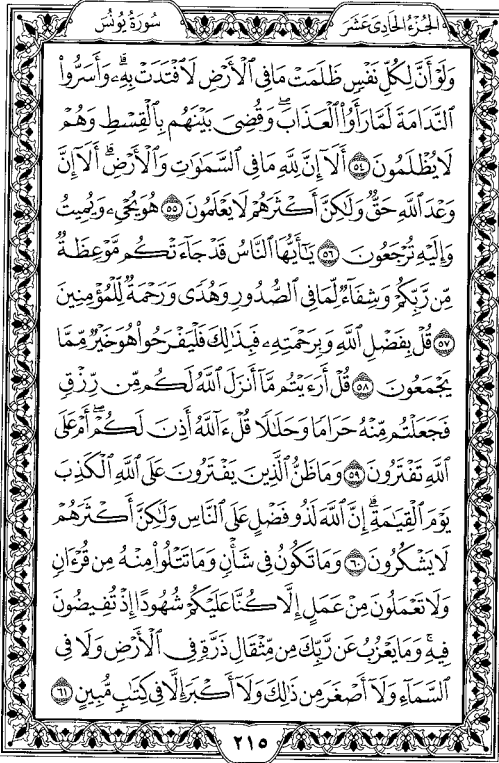 الجزء الحادي عشر
سورة يونس
وَلَوْ أَنَّ لِكُلِّ نَفْسٍ ظَلَمَتْ مَا فِي ٱلْأَرْضِ لَٱفْتَدَتْ بِهِۦۗ وَأَسَرُّوا۟
ٱلنَّدَامَةَ لَمَّا رَأَوُا۟ ٱلْعَذَابَۖ وَقُضِيَ بَيْنَهُم بِٱلْقِسْطِ وَهُمْ
لَا يُظْلَمُونَ ٥٤ أَلَآ إِنَّ لِلَّهِ مَا فِي ٱلسَّمَٰوَٰتِ وَٱلْأَرْضِۗ أَلَآ إِنَّ
وَعْدَ ٱللَّهِ حَقٌّ وَلَٰكِنَّ أَكْثَرَهُمْ لَا يَعْلَمُونَ ٥٥ هُوَ يُحْيِۦ وَيُمِيتُ
وَإِلَيْهِ تُرْجَعُونَ ٥٦ يَٰٓأَيُّهَا ٱلنَّاسُ قَدْ جَآءَتْكُم مَّوْعِظَةٌ
مِّن رَّبِّكُمْ وَشِفَآءٌ لِّمَا فِي ٱلصُّدُورِ وَهُدًى وَرَحْمَةٌ لِّلْمُؤْمِنِينَ
٥٧ قُلْ بِفَضْلِ ٱللَّهِ وَبِرَحْمَتِهِۦ فَبِذَٰلِكَ فَلْيَفْرَحُوا۟ هُوَ خَيْرٌ مِّمَّا
يَجْمَعُونَ ٥٨ قُلْ أَرَءَيْتُم مَّآ أَنزَلَ ٱللَّهُ لَكُم مِّن رِّزْقٍ
فَجَعَلْتُم مِّنْهُ حَرَامًا وَحَلَٰلًا قُلْ ءَآللَّهُ أَذِنَ لَكُمْۖ أَمْ عَلَى
ٱللَّهِ تَفْتَرُونَ ٥٩ وَمَا ظَنُّ ٱلَّذِينَ يَفْتَرُونَ عَلَى ٱللَّهِ ٱلْكَذِبَ
يَوْمَ ٱلْقِيَٰمَةِۗ إِنَّ ٱللَّهَ لَذُو فَضْلٍ عَلَى ٱلنَّاسِ وَلَٰكِنَّ أَكْثَرَهُمْ
لَا يَشْكُرُونَ ٦٠ وَمَا تَكُونُ فِي شَأْنٍ وَمَا تَتْلُوا۟ مِنْهُ مِن قُرْءَانٍ
وَلَا تَعْمَلُونَ مِنْ عَمَلٍ إِلَّا كُنَّا عَلَيْكُمْ شُهُودًا إِذْ تُفِيضُونَ
فِيهِۚ وَمَا يَعْزُبُ عَن رَّبِّكَ مِن مِّثْقَالِ ذَرَّةٍ فِي ٱلْأَرْضِ وَلَا فِي
ٱلسَّمَآءِ وَلَآ أَصْغَرَ مِن ذَٰلِكَ وَلَآ أَكْبَرَ إِلَّا فِي كِتَٰبٍ مُّبِينٍ ٦١
٢١٥